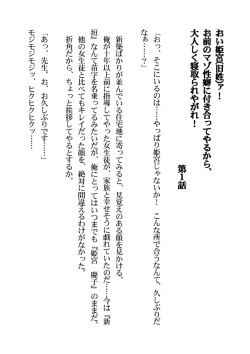 おい姫宮(旧姓)ァ!
お前のマゾ性癖に付き合ってやるから、
大人しく寝取られやがれ!
第1話
「おっ、そこにいるのは……やっぱり姫宮じゃないか! こんな所で合うなんて、久しぶりだ
なぁ……?」
新築ばかりが並んでいる住宅地に寄ってみると、見覚えのある顔を見かける。
俺が十年以上前に指導してやった女生徒が、家族と幸せそうに戯れていたのだ……今は『新
垣』なんて苗字を名乗ってるみたいだが、俺にとってはいつまでも『姫宮 慶子』のままだ。
他の女生徒と比べてもキレイだった顔を、絶対に間違えるわけがなかった。
折角だから、ちょっと挨拶してやるとするか。
「あっ、先生。お、お久しぶりです……」
モジモジモジッ、ヒクヒクヒクッ……